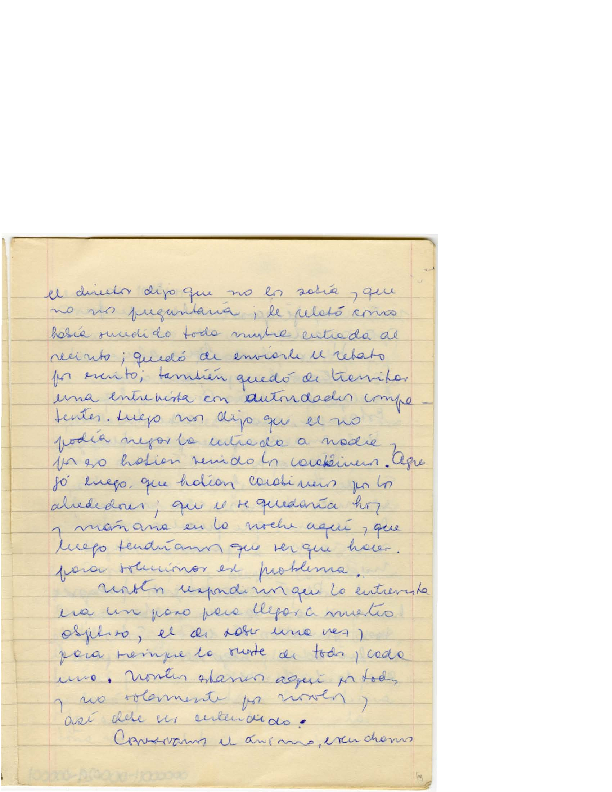 el director dijo que no los sabía, que
no nos preguntaría; le relató como
había sucedido toda nuestra entrada al
recinto; quedó de enviarle el relato
por escrito; también quedó de tramitar
una entrevista con autoridades compe-
tentes. Luego nos dijo que el no
podía negar la entrada a nadie,
por eso habían venido los carabineros. Agre
gó luego que habían carabineros por los
alrededores; que el se quedaría hoy
y mañana en la noche aquí, que
luego tendríamos que ver que hacer
para solucionar el problema.
Nosotros respondimos que la entrevista
era un paso para llegar a nuestro
objetivo, el de saber una vez y
para siempre la suerte de todos y cada
uno. Nosotros estamos aquí por todos
y no solamente por nosotros,
así debe ser entendido.
Conservamos el ánimo, escuchamos